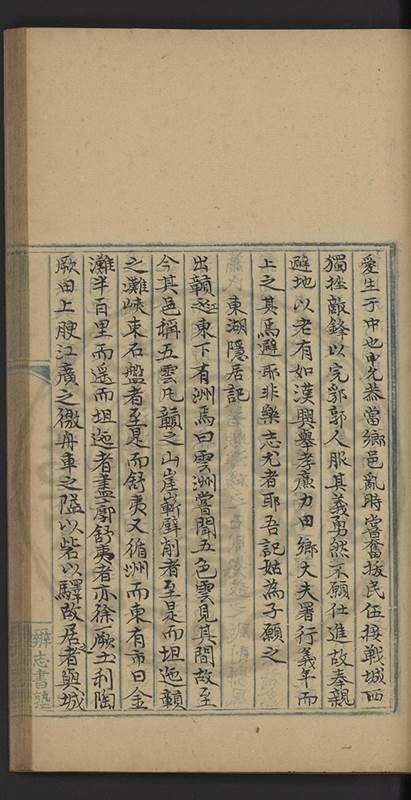 愛生于中也申允恭當鄉邑亂時嘗奮拔民伍接戰城西
獨挫敵鋒以完郛郭人服其義勇然不願仕進故奉親
避地以老有如漢興舉孝廉力田鄉大夫署行義年而
上之其焉避耶非樂志尤者耶吾記姑為子願之
東湖隱居記
出贛遡東下有洲焉曰雲洲嘗聞五色雲見其間故至
今其邑稱五雲凡贛之山崖嶄辟削者至是而坦迤贛
之灘峽束石盤者至是而舒夷又循洲而東有市曰金
灘半百里而遥而坦迤者盡廓舒夷者亦徐厥土利陶
厥田上腴江廣之徼舟車之隘以砦以驛故居者與城
辨志書塾